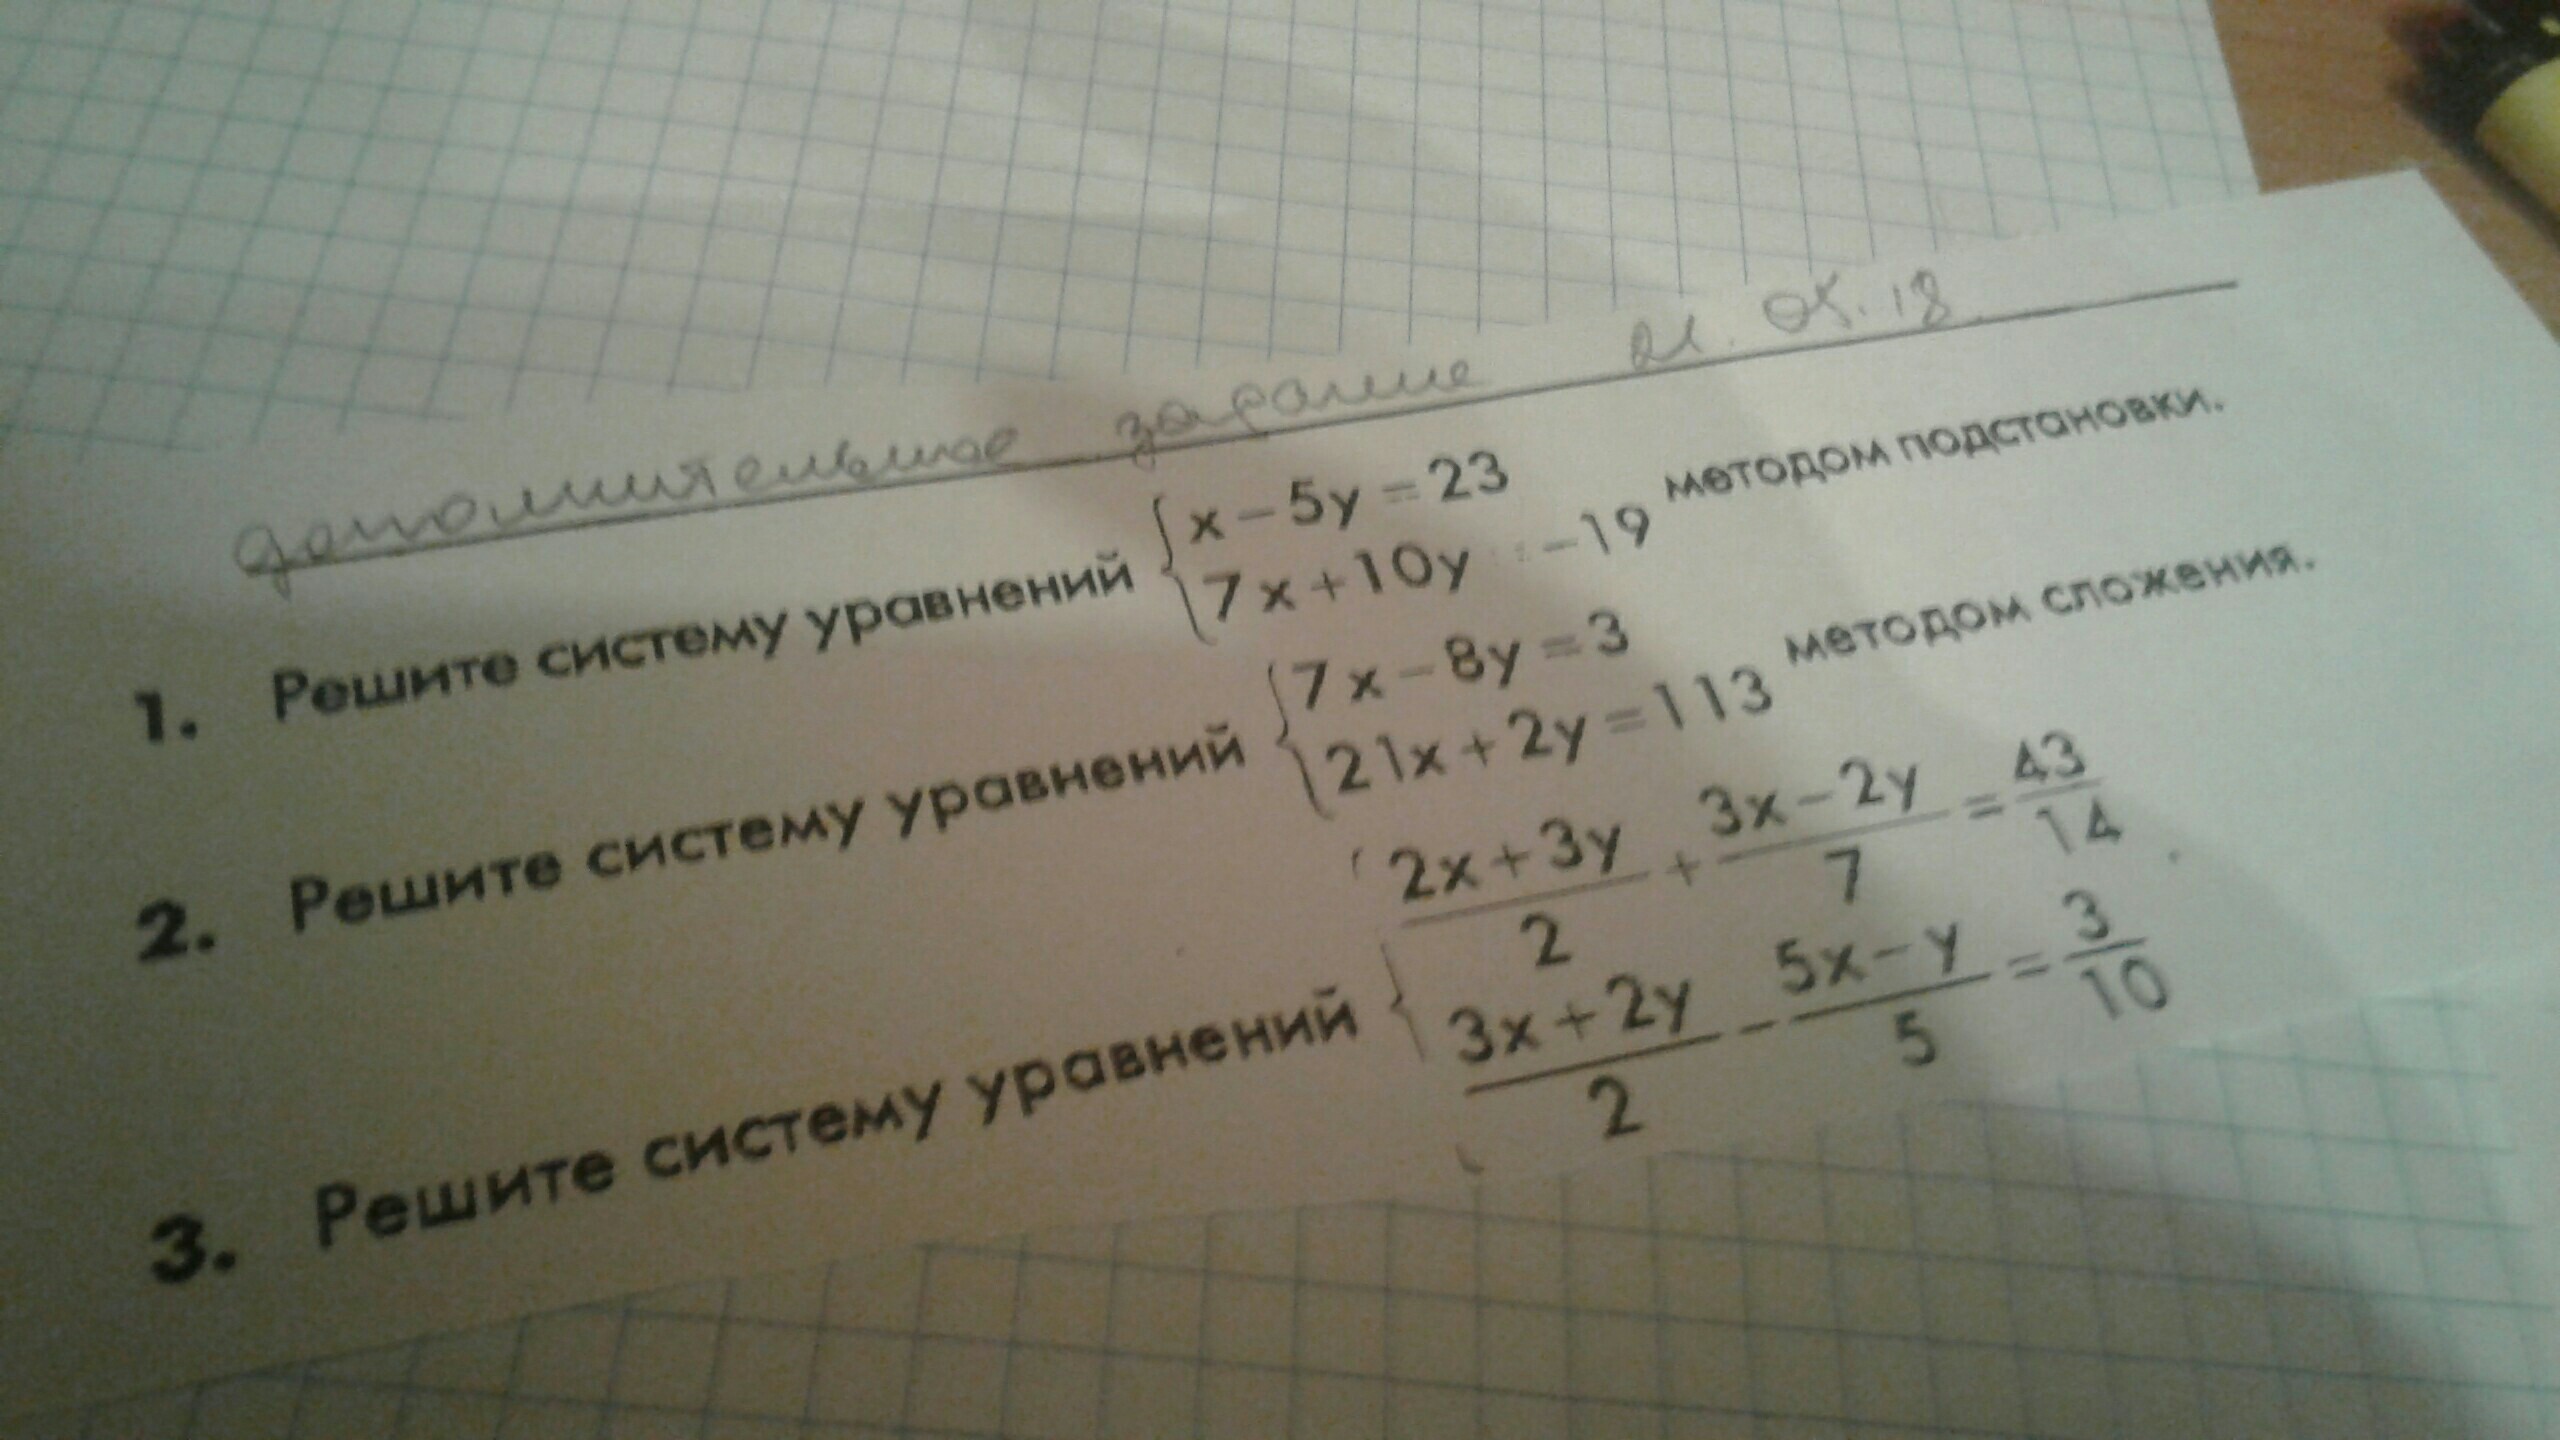 дополнительное задание 21.05.18
1. Решите систему уравнений { x − 5y = 23
7x + 10y = −19 методом подстановки.
2. Решите систему уравнений { 7x − 8y = 3
21x + 2y = 113 методом сложения.
3. Решите систему уравнений { (2x + 3y)/2 + (3x − 2y)/7 = 43/14
(3x + 2y)/2 − (5x − y)/5 = 3/10 .